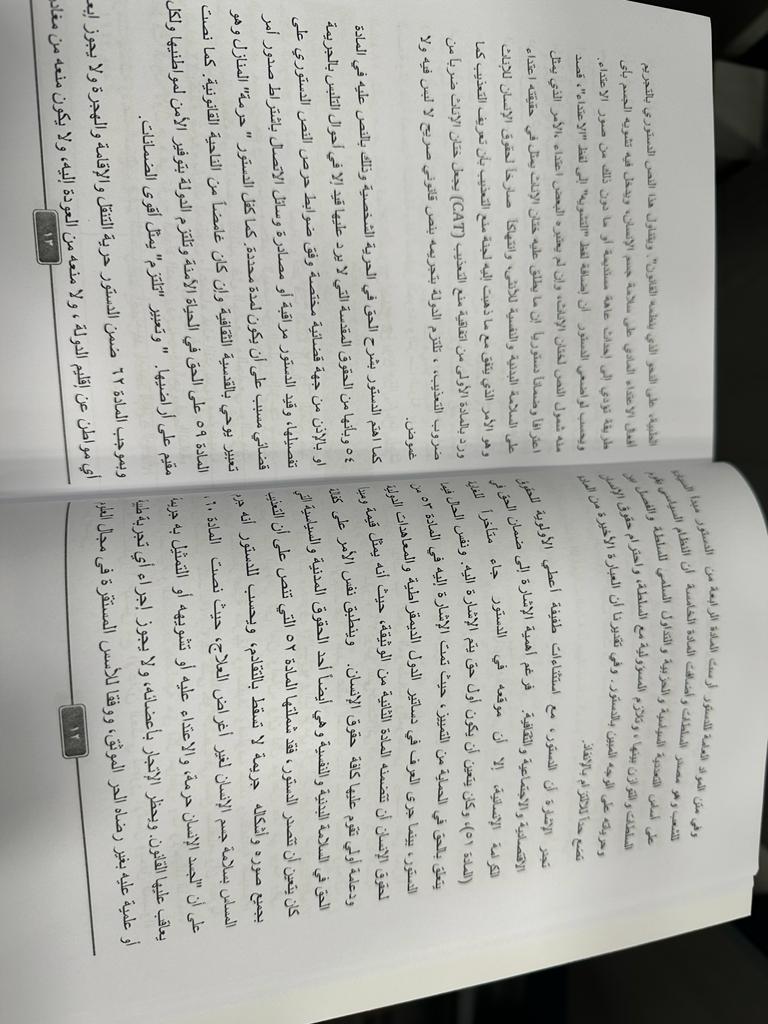 وفي متن المواد العامة للدستور أرست المادة الرابعة من الدستور مبدأ السيادة
للشعب وهو مصدر السلطات وأضافت المادة الخامسة أن النظام السياسي يقوم
على أساس التعددية السياسية والحزبية والتداول السلمي للسلطة والفصل بين
السلطات والتوازن بينها، وتلازم المسؤولية مع السلطة، واحترام حقوق الإنسان
وحرياته على الوجه المبين بالدستور. وفي تقديرنا أن العبارة الأخيرة من المادة
تضع حداً للالتزام بالإنفاذ.
تجدر الإشارة أن الدستور، مع استثناءات طفيفة أعطي الأولوية للحقوق
الاقتصادية والاجتماعية والثقافية. فرغم أهمية الإشارة إلى ضمان الحق في
الكرامة الإنسانية، إلا أن موقعه في الدستور جاء متأخراً للغاية
(المادة ٥١)، وكان يتعين أن يكون أول حق يتم الإشارة إليه. ونفس الحال فيما
يتعلق بالحق في الحماية من التمييز، حيث تمت الإشارة إليه في المادة ٥٣ من
الدستور، بينما جرى العرف في دساتير الدول الديمقراطية والمعاهدات الدولية
لحقوق الإنسان أن تتضمنه المادة الثانية من الوثيقة، حيث أنه يمثل قيمة ومبدأ
ودعامة أولي تقوم عليها كافة حقوق الإنسان. وينطبق نفس الأمر على كفالة
الحق في السلامة البدنية والنفسية وهي أيضاً أحد الحقوق المدنية والسياسية التي
كان يتعين أن تتصدر الدستور، فقد شملتها المادة ٥٢ التي تنص على أن التعذيب
بجميع صوره وأشكاله جريمة لا تسقط بالتقادم، ويحسب للدستور أنه جرم
المساس بسلامة جسم الإنسان لغير أغراض العلاج، حيث نصت المادة ٦٠
على أن "لجسد الإنسان حرمة، والاعتداء عليه أو تشويهه أو التمثيل به جريمة
يعاقب عليها القانون. ويحظر الإتجار بأعضائه، ولا يجوز إجراء أي تجربة طبية
أو علمية عليه بغير رضاه الحر الموثق، ووفقا للأسس المستقرة في مجال العلوم
١٢
الطبية، على النحو الذي ينظمه القانون". ويتناول هذا النص الدستوري بالتجريم
أفعال الاعتداء المادي على سلامة جسم الإنسان، ويدخل فيه تشويه الجسم بأى
طريقة تؤدي إلى إحداث عاهة مستديمة أو ما دون ذلك من صور الاعتداء.
ويحسب لواضعي الدستور أن إضافة لفظ "التشويه" إلى لفظ "الاعتداء"، قصد
منه شمول النص لختان الإناث، وإن لم يعتبره البعض اعتداء .الأمر الذي يمثل
اعترافاً وضماناً دستورياً إن ما يطلق عليه ختان الإناث يمثل في حقيقته اعتداء
على السلامة البدنية والنفسية للأنثى، وانتهاكاً صارخاً لحقوق الإنسان للإناث
وهو الأمر الذي يتفق مع ما ذهبت إليه لجنة منع التعذيب بأن تعريف التعذيب كما
ورد بالمادة الأولى من اتفاقية منع التعذيب (CAT) يجعل ختان الإناث ضرباً من
ضروب التعذيب، ، تلتزم الدولة بتجريمه بنص قانوني صريح لا لبس فيه ولا
غموض.
كما اهتم الدستور بشرح الحق في الحرية الشخصية وذلك بالنص عليه في المادة
٥٤ وبأنها من الحقوق المقدسة التي لا يرد عليها قيد إلا في أحوال التلبس بالجريمة
او بالإذن من جهة قضائية مختصة وفق ضوابط حرص النص الدستوري على
تفصيلها، وقيد الدستور مراقبة أو مصادرة وسائل الاتصال باشتراط صدور أمر
قضائي مسبب على أن يكون لمدة محددة. كما كفل الدستور "حرمة" المنازل وهو
تعبير يوحي بالقدسية الثقافية وإن كان غامضاً من الناحية القانونية. كما نصت
المادة ٥٩ على الحق في الحياة الآمنة وتلتزم الدولة بتوفير الأمن لمواطنيها ولكل
مقيم على أراضيها. " وتعبير "تلتزم" يمثل أقوى الضمانات.
وبموجب المادة ٦٢ ضمن الدستور حرية التنقل والإقامة والهجرة ولا يجوز إبعاد
أي مواطن عن إقليم الدولة ، ولا منعه من العودة إليه، ولا يكون منعه من مغادرة
١٣